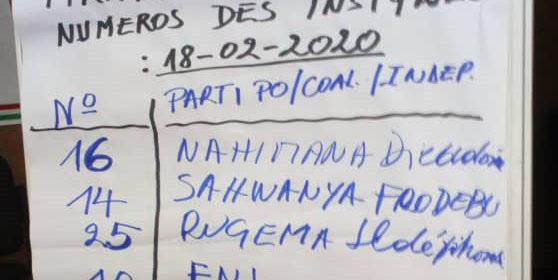 NUMEROS DES
: 18-02-2020
Nº PARTI PO/COAL. /INDEP.
16 NAHIMANA Dieudonné
14 SAHWANYA FRODEBU
25 RUGEMA Ildéphonse
FNL